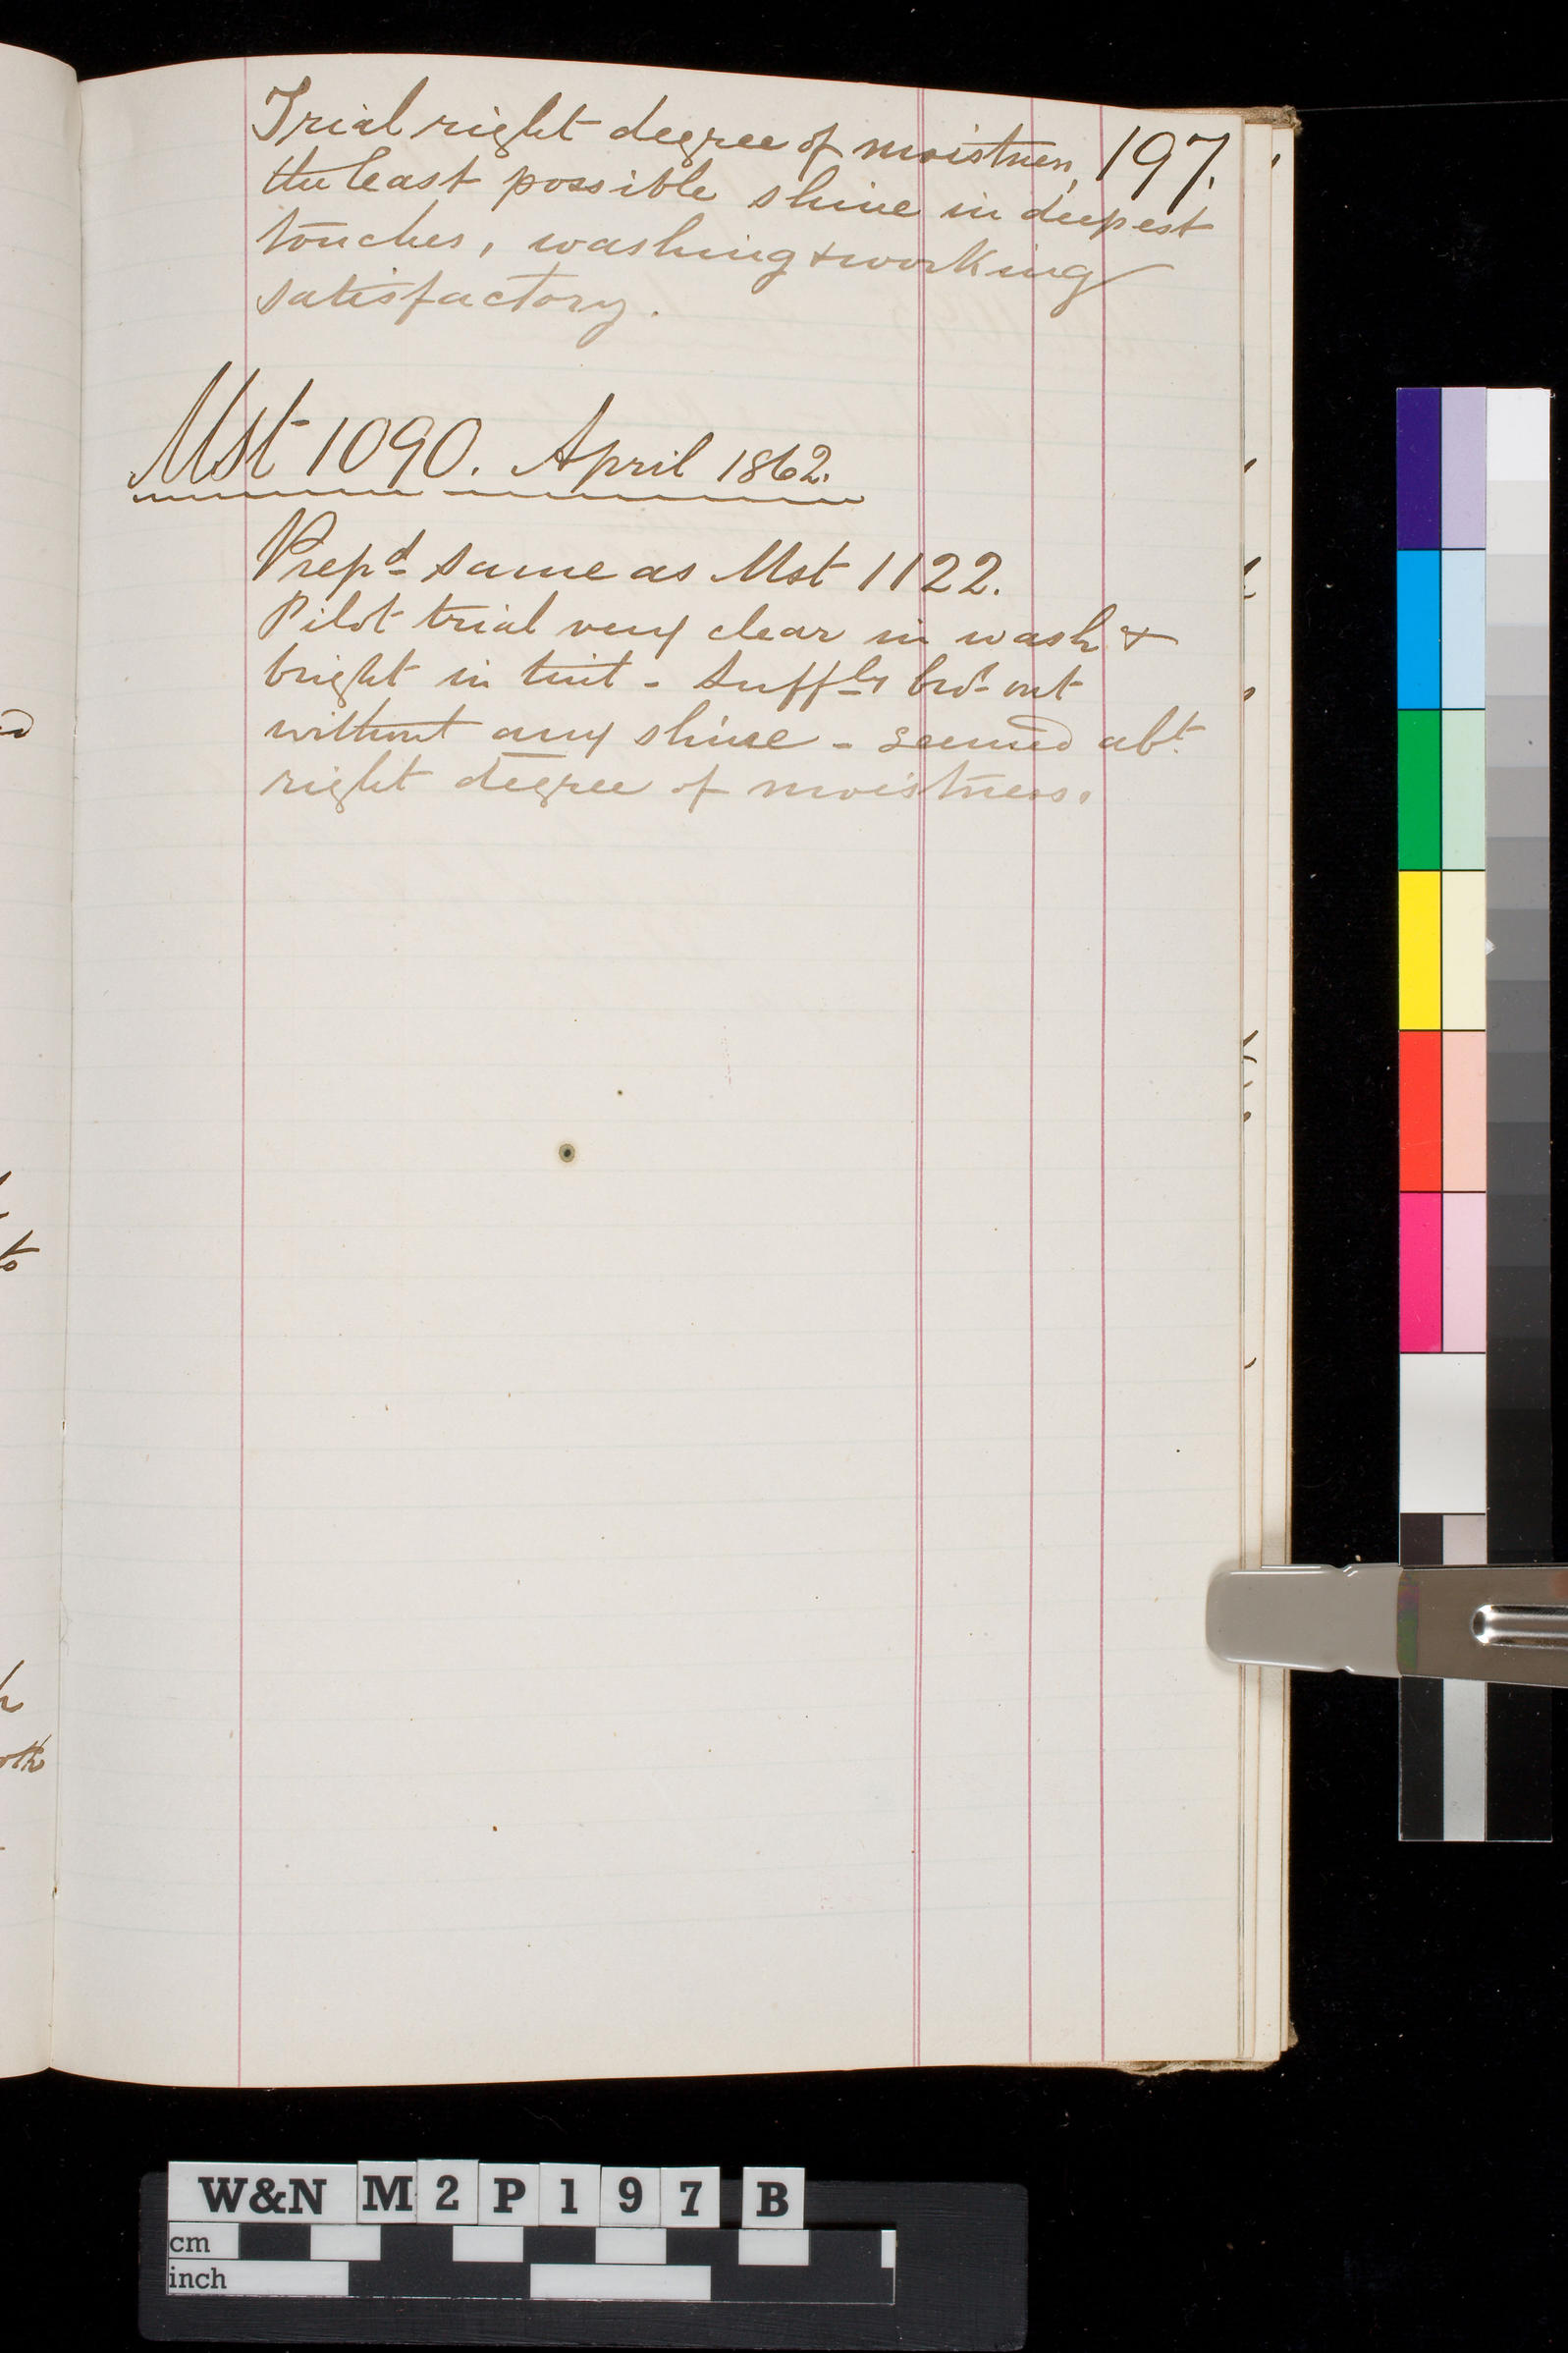 197.
Trial right degree of moistness,
the least possible shine in deepest
touches, washing & working
satisfactory.
Mst 1090. April 1862.
Prepd same as Mst 1122.
Pilot trial very clear in wash &
bright in tint - suffly brot out
without any shine - seemed abt
right degree of moistness.
to
W&N M2P197 B
cm
inch